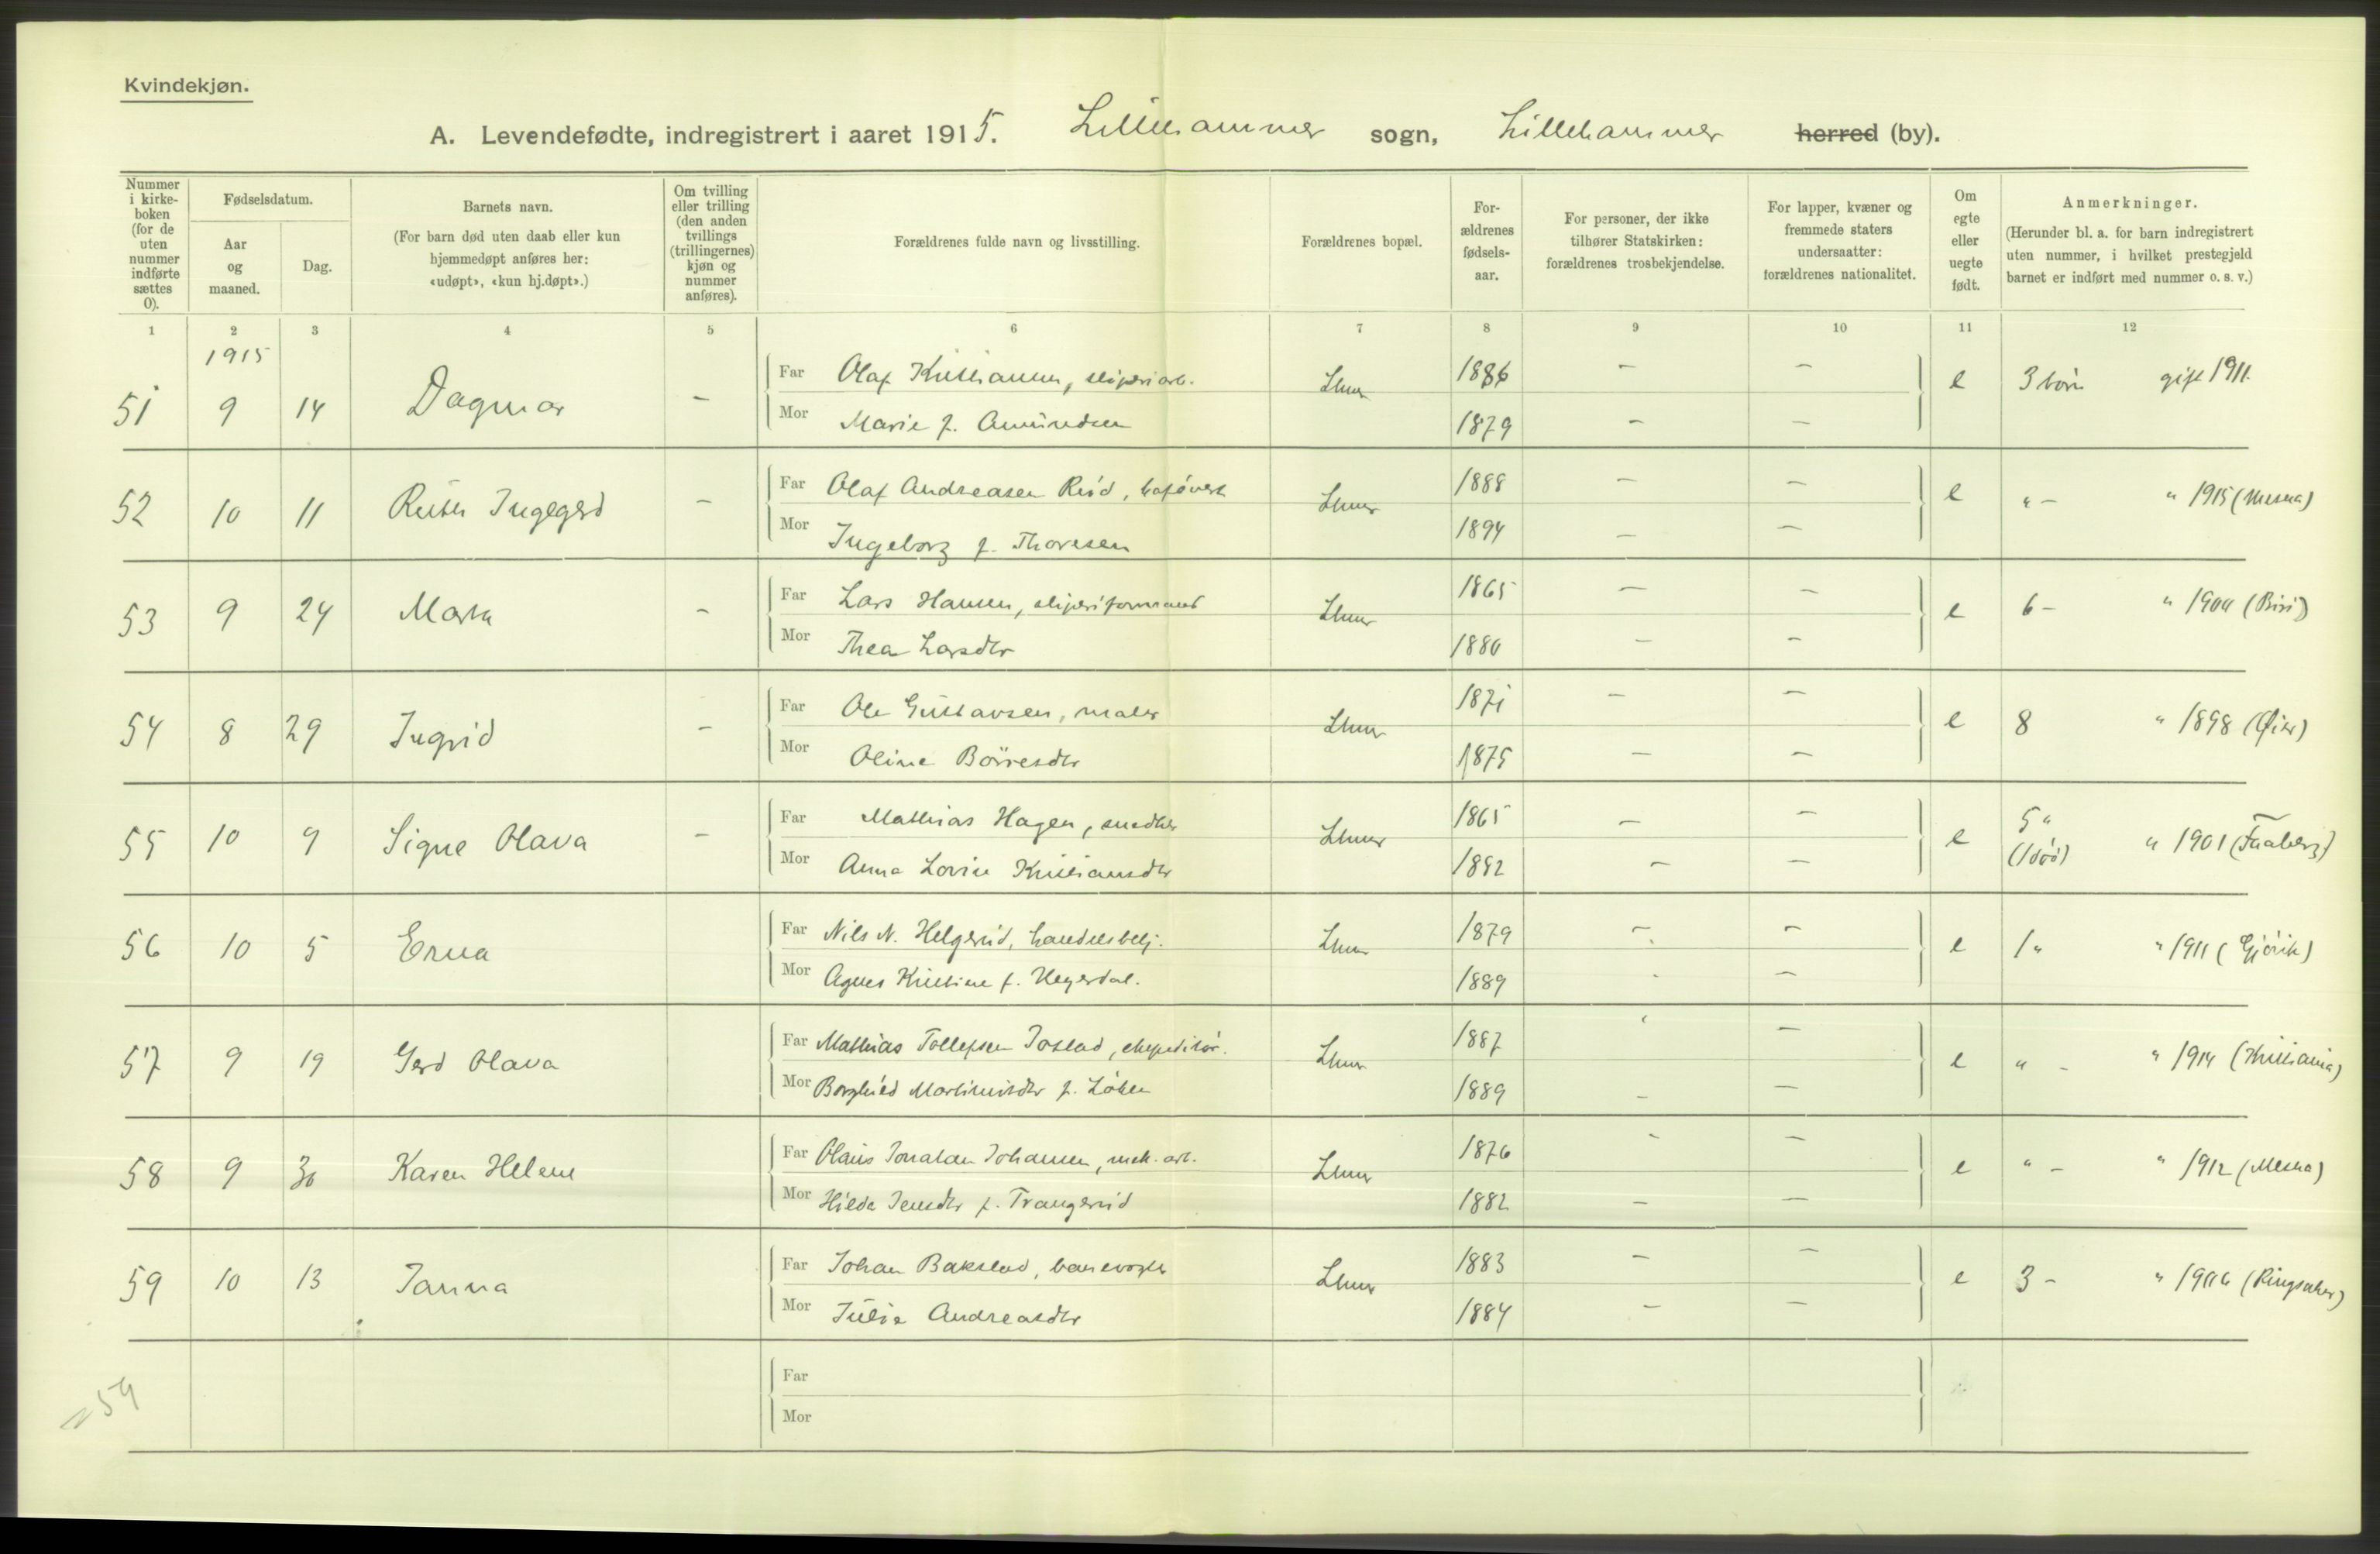 Kvindekjøn.
A. Levendefødte, indregistrert i aaret 1915. Lillehammer sogn, Lillehammer herred (by).
Nummer i kirkeboken (for de uten nummer indførte sættes 0).
Fødselsdatum.
Aar og maaned.
Dag.
Barnets navn.
(For barn død uten daab eller kun hjemmedøpt anføres her: «udøpt», «kun hj.døpt».)
Om tvilling eller trilling (den anden tvillings (trillingernes) kjøn og nummer anføres).
Forældrenes fulde navn og livsstilling.
Forældrenes bopæl.
Forældrenes fødselsaar.
For personer, der ikke tilhører Statskirken: forældrenes trosbekjendelse.
For lapper, kvæner og fremmede staters undersaatter: forældrenes nationalitet.
Om egte eller uegte født.
Anmerkninger.
(Herunder bl. a. for barn indregistrert uten nummer, i hvilket prestegjeld barnet er indført med nummer o. s. v.)
1 2 3 4 5 6 7 8 9 10 11 12
1915
51 9 14 Dagmar – Far Olaf Kristiansen, sliperiarb. Lhmr 1886 – – e 3 børn gift 1911.
Mor Marie f. Amundsen 1879 – –
52 10 11 Ruth Ingegerd – Far Olaf Andreasen Riid, Lhmr 1888 – – e " – " 1915 (Mesna)
Mor Ingeborg f. Thoresen 1894 – –
53 9 24 Marta – Far Lars Hansen, sliperiformand Lhmr 1865 – – e 6 – " 1900 (Biri)
Mor Thea Larsdtr 1880 – –
54 8 29 Ingrid – Far Ole Gustavsen, maler Lhmr 1871 – – e 8 " 1898 (Øier)
Mor Oline Börresdtr 1875 – –
55 10 9 Signe Olava – Far Mathias Hagen, snedker Lhmr 1865 – – e 5 " (1 död) " 1901 (Faaberg)
Mor Anna Lovise Kristiansdtr 1882 – –
56 10 5 Erna Far Nils N. Helgerud, handelsbetj. Lhmr 1879 – – e 1 " " 1911 (Gjövik)
Mor Agnes Kristine f. Heyerdal. 1889 –
57 9 19 Gerd Olava Far Mathias Tollefsen Jostad, ekspeditör. Lhmr 1887 – e " – " 1914 (Kristiania)
Mor Borghild Martinusdtr f. Löken 1889 – –
58 9 30 Karen Helene Far Olaus Jonatan Johansen, mek. arb. Lhmr 1876 – – e " – " 1912 (Mesna)
Mor Hilda Jensdtr f. Trangerud 1882 – –
59 10 13 Janna Far Johan Bakstad, banevogter Lhmr 1883 – – e 3 – " 1906 (Ringsaker)
Mor Julie Andreasdtr 1884 – –
Far
= 59
Mor